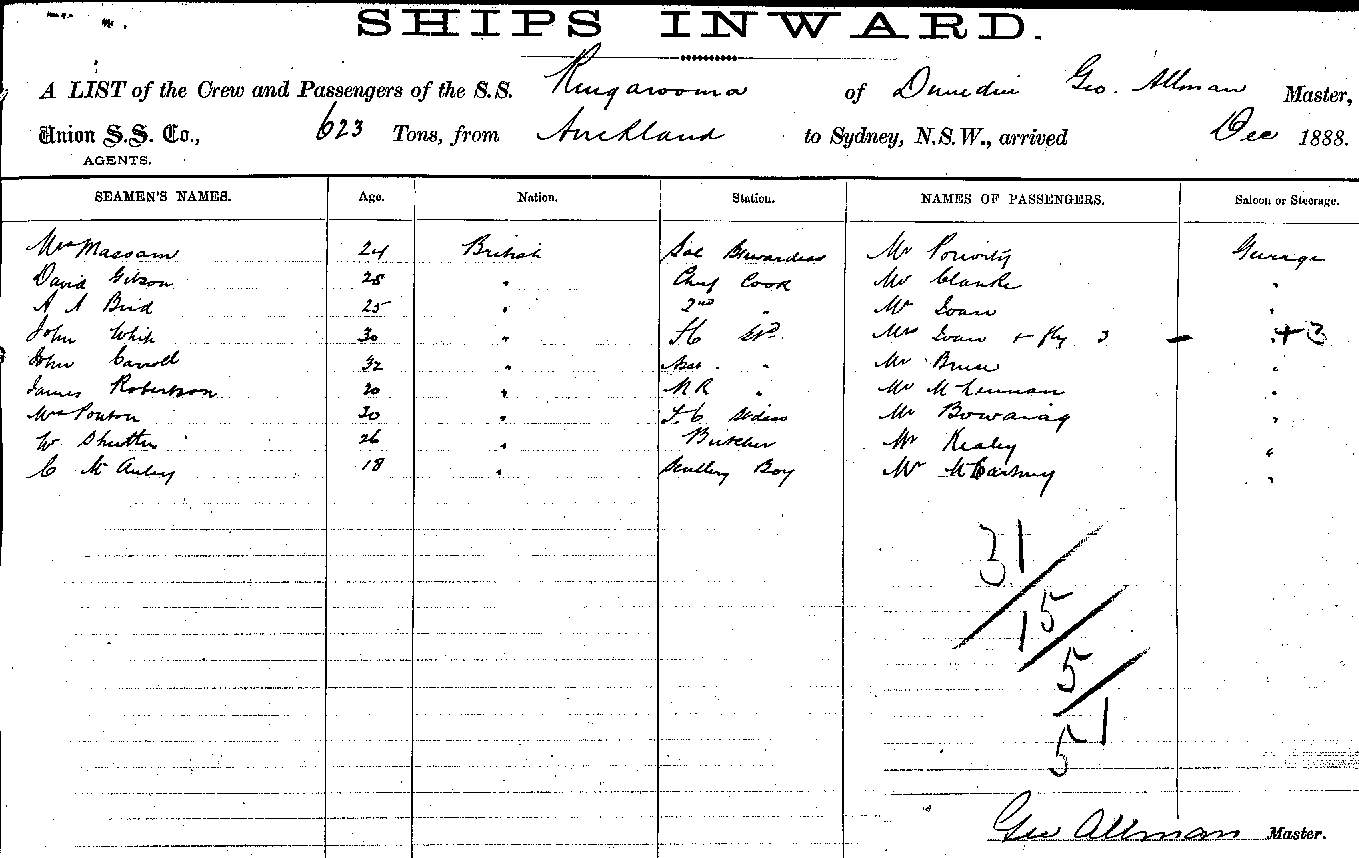 SHIPS INWARD.
A LIST of the Crew and Passengers of the S.S. Ringarooma of Dunedin Geo. Allman Master,
Union S.S. Co., 623 Tons, from Auckland to Sydney, N.S.W., arrived Dec 1888.
AGENTS.
SEAMEN'S NAMES. Age. Nation. Station. NAMES OF PASSENGERS. Saloon or Steerage.
Mrs Massam 24 British Sal Stewardess Mr
David Gibson 25 " Chief Cook Mr Clarke "
A A Bird 25 " 2nd " Mr "
John White 30 " Mrs + fly 3 - " + 3
John Carroll 32 " " Mr Bruce "
James Robertson 20 " " Mr McLennan "
Mrs Ponton 30 " Mr "
W 26 " Butcher Mr Kealey "
C McAuley 18 " Scullery Boy Mr McCartney "
31
15
5
51
Geo Allman Master.